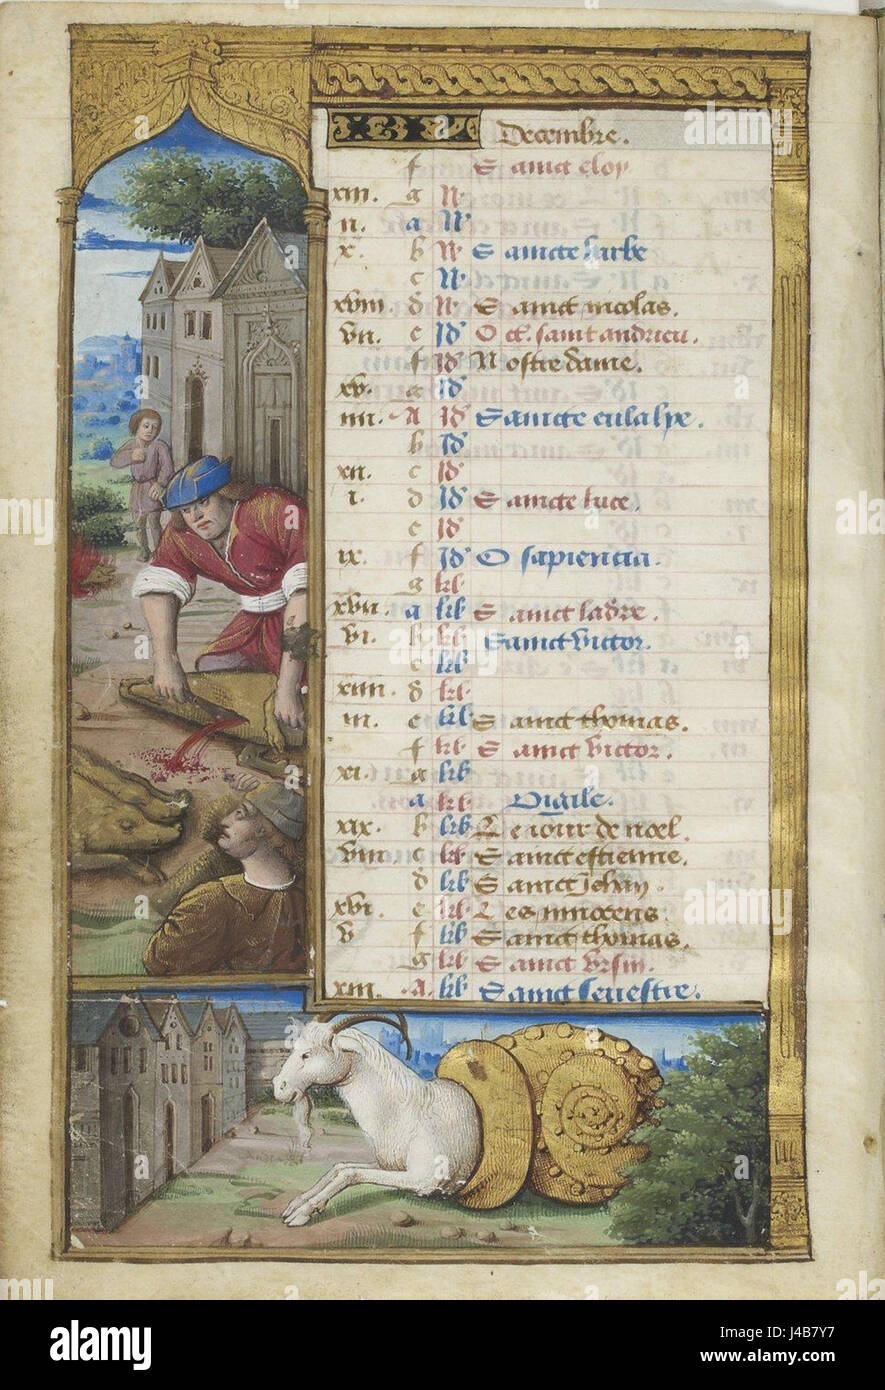 Decembre.
f Sainct eloy
xiii. g N
ii. a N
x. b N Saincte barbe
c N
xviii. d N Sainct nicolas.
vii. e Id Oct. saint andrieu.
f Id Nostre dame.
xv. g Id
iiii. A Id Saincte eulalye.
b Id
xii. c Id
i. d Id Saincte luce.
e Id
ix. f Id O sapiencia.
g klr
xvii. a klr Sainct ladre.
vi. b klr Sainct victor.
c klr
xiiii. d klr
iii. e klr Sainct thomas.
f klr Sainct victor.
xi. g klr
a klr Vigile.
xix. b klr Le iour de noel.
viii. c klr Sainct estienne.
d klr Sainct Jehan.
xvi. e klr Les innocens.
v f klr Sainct thomas.
g klr Sainct Vrsin.
xiii. A. klr Sainct seuestre.
alamy
alamy stock photo
J4B7Y7
www.alamy.com